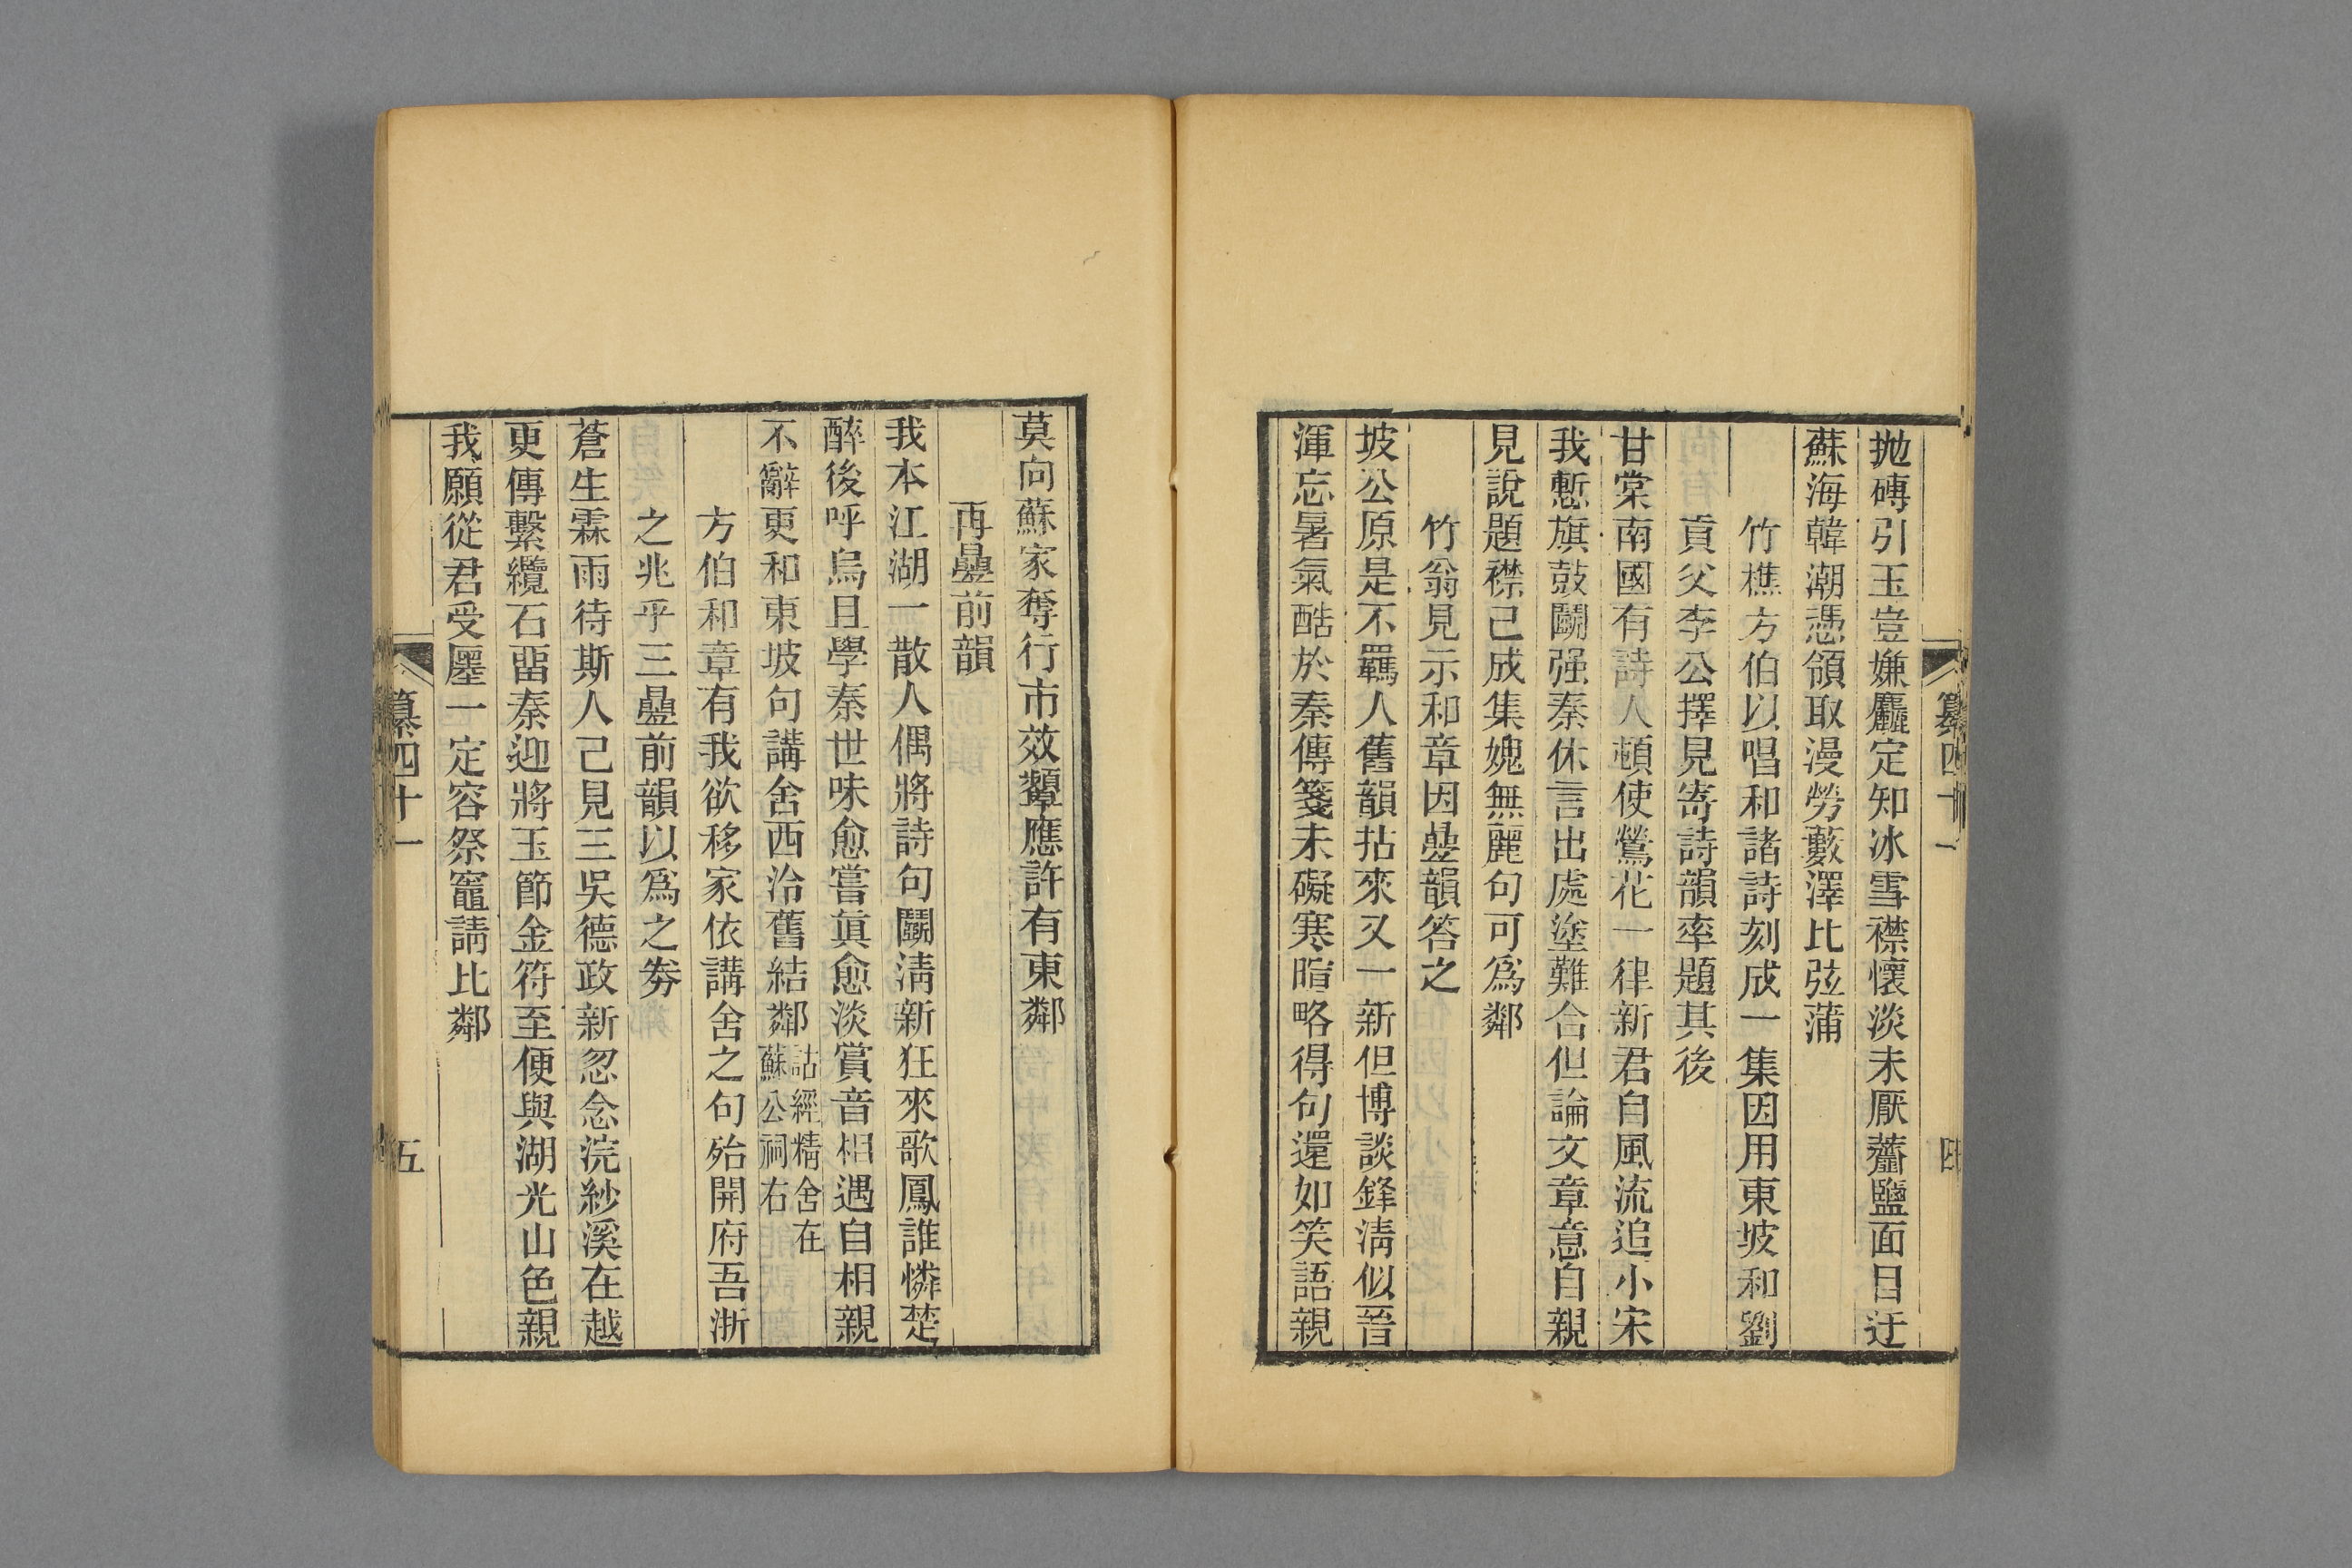 纂四十一
四
拋磚引玉豈嫌麤定知冰雪襟懷淡未厭虀鹽面目迂
蘇海韓潮憑領取漫勞藪澤比弦蒲
竹樵方伯以唱和諸詩刻成一集因用東坡和劉
貢父李公擇見寄詩韻率題其後
甘棠南國有詩人頓使鶯花一律新君自風流追小宋
我慙旗鼓鬬强秦休言出處塗難合但論文章意自親
見說題襟已成集媿無麗句可爲鄰
竹翁見示和章因疊韻答之
坡公原是不羈人舊韻拈來又一新但博談鋒淸似晉
渾忘暑氣酷於秦傳箋未礙寒暄略得句還如笑語親
莫向蘇家奪行市效顰應許有東鄰
再疊前韻
我本江湖一散人偶將詩句鬬淸新狂來歌鳳誰憐楚
醉後呼烏且學秦世味愈嘗眞愈淡賞音相遇自相親
不辭更和東坡句講舍西泠舊結鄰詁經精舍在蘇公祠右
方伯和章有我欲移家依講舍之句殆開府吾浙
之兆乎三疊前韻以爲之劵
蒼生霖雨待斯人已見三吳德政新忽念浣紗溪在越
更傳繫纜石留秦迎將玉節金符至便與湖光山色親
我願從君受廛一定容祭竈請比鄰
纂四十一
五